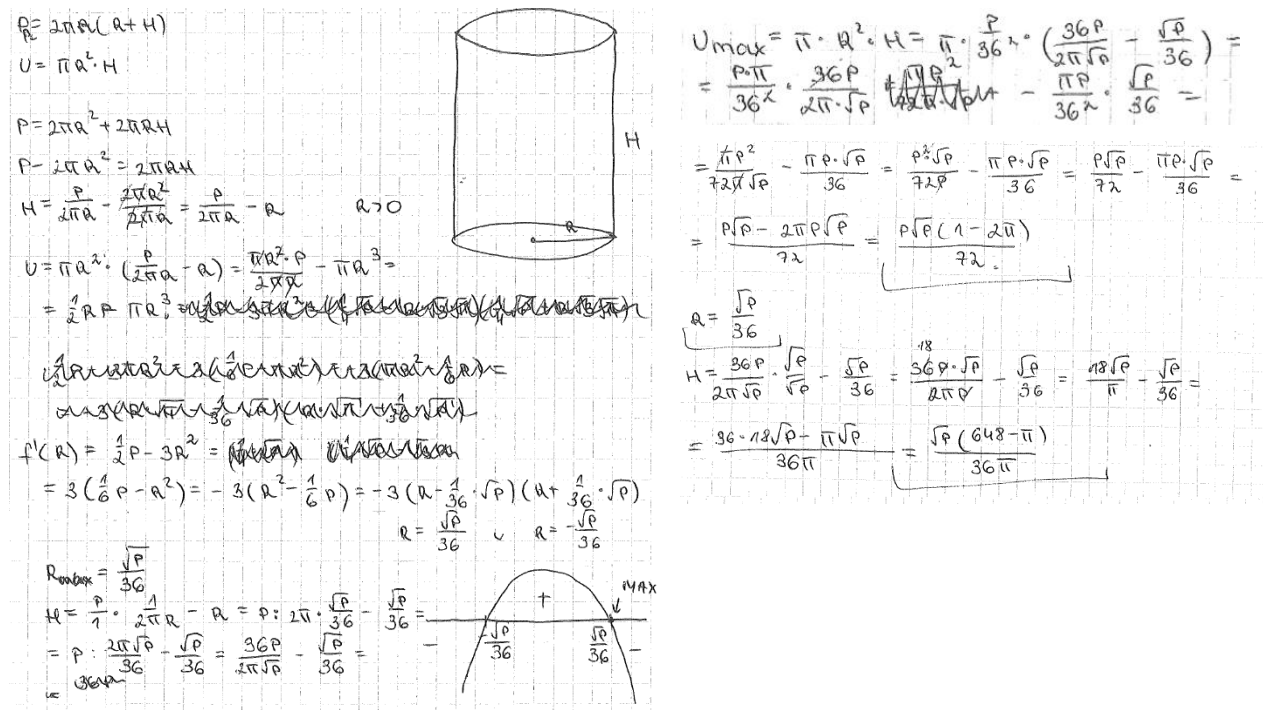 P = 2πR(R+H)
V = πR²·H
P = 2πR² + 2πRH
P - 2πR² = 2πRH
H = P/2πR - 2πR²/2πR = P/2πR - R    R>0
V = πR²·(P/2πR - R) = πR²·P/2πR - πR³ =
= 1/2 RP - πR³
f'(R) = 1/2 P - 3R² =
= 3(1/6 P - R²) = -3(R² - 1/6 P) = -3(R - 1/36·√P)(R + 1/36·√P)
R = √P/36 ∪ R = -√P/36
Rmax = √P/36
H = P/1 · 1/2πR - R = P : 2π·√P/36 - √P/36 =
= P : 2π√P/36 - √P/36 = 36P/2π√P - √P/36 =
=
H
R
MAX
+
- -√P/36 √P/36 -
Vmax = π·R²·H = π·P/36²·(36P/2π√P - √P/36) =
= P·π/36² · 36P/2π·√P - πP/36² · √P/36 =
= πP²/72π√P - πP·√P/36 = P²·√P/72P - πP·√P/36 = P√P/72 - πP·√P/36 =
= P√P - 2πP√P/72 = P√P(1-2π)/72
R = √P/36
H = 36P/2π√P · √P/√P - √P/36 = 36P·√P/2πP - √P/36 = 18√P/π - √P/36 =
18
= 36·18√P - π√P/36π = √P(648-π)/36π